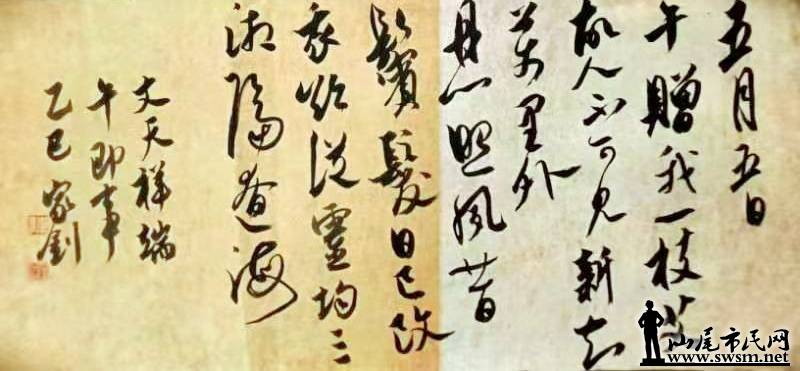 五月五日
午贈我一枝艾
故人不可見新知
萬里外
丹心照夙昔
鬢髮日已改
我欲從靈均三
湘隔遼海
文天祥端
午即事
乙巳 家
汕尾市民网
www.swsm.net